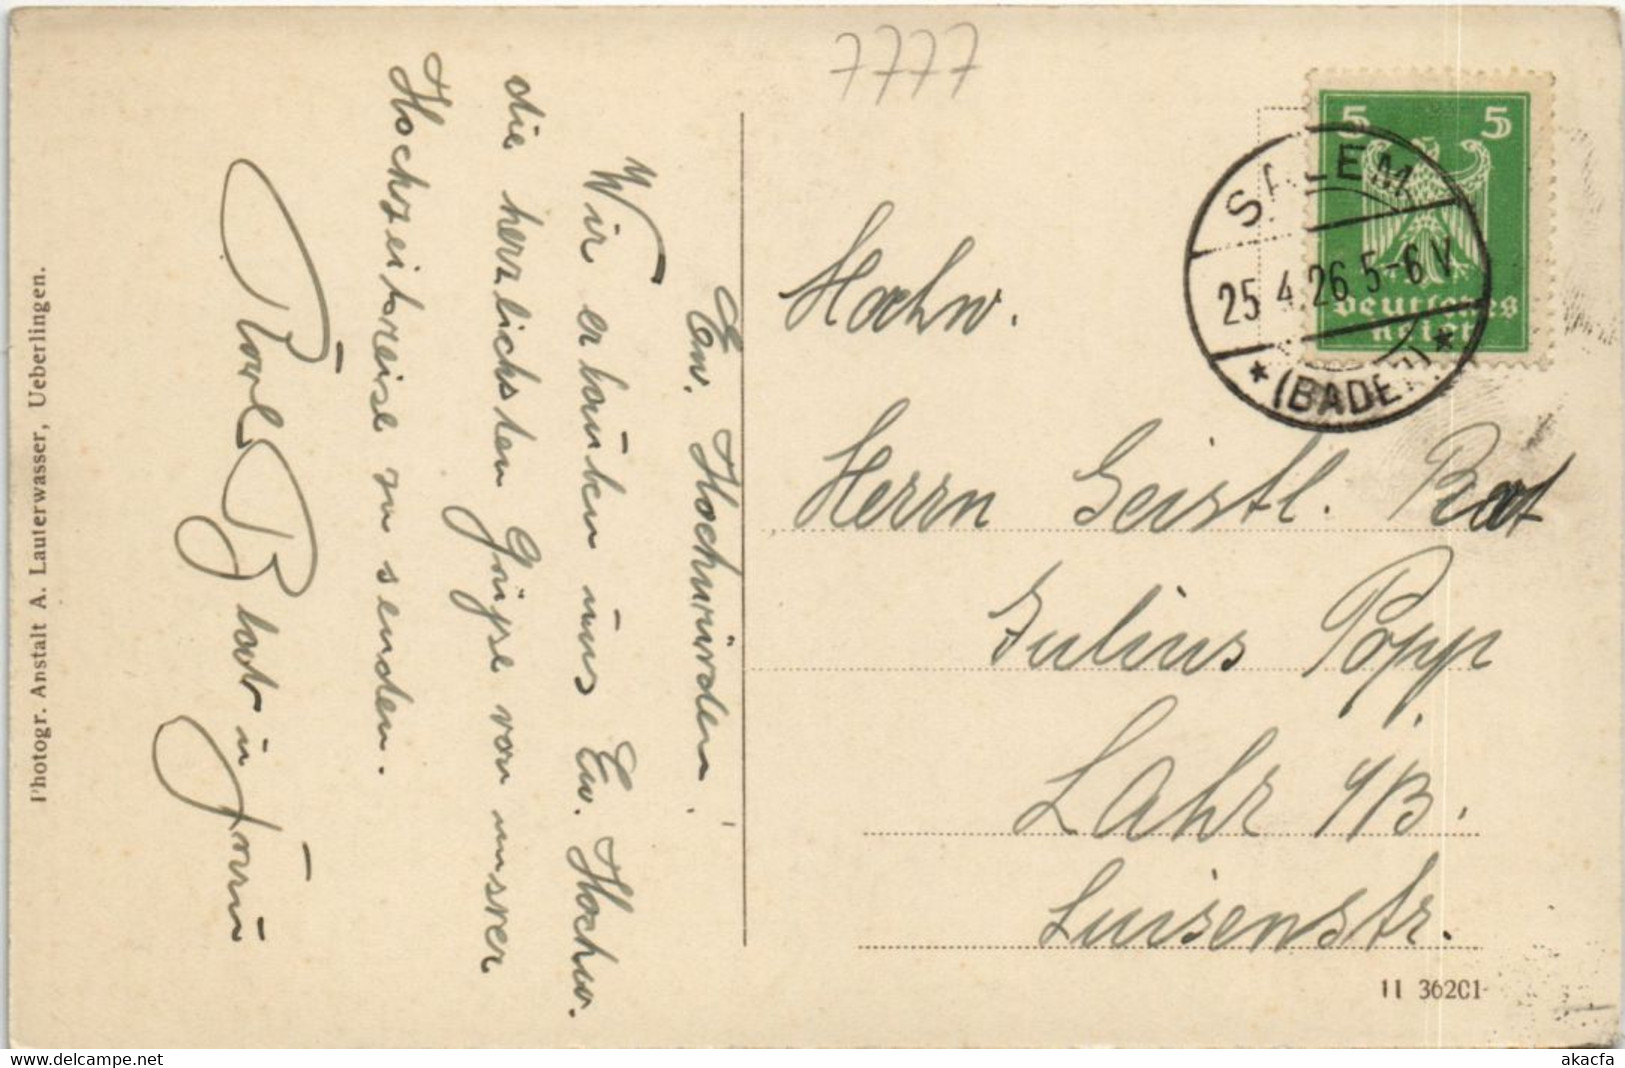 7777
Ew. Hochwürden!
Wir erlauben uns Ew. Hochw.
die herzlichsten Grüße von unsrer
Hochzeitsreise zu senden.
in
Photogr. Anstalt A. Lauterwasser, Ueberlingen.
5 5
Deutsches
Reich
SALEM
25.4.26 5-6 V.
* (BADEN) *
Hochw.
Herrn Geistl. Rat
Julius Popp
Lahr i/B.
Luisenstr.
11 36201
akacfa